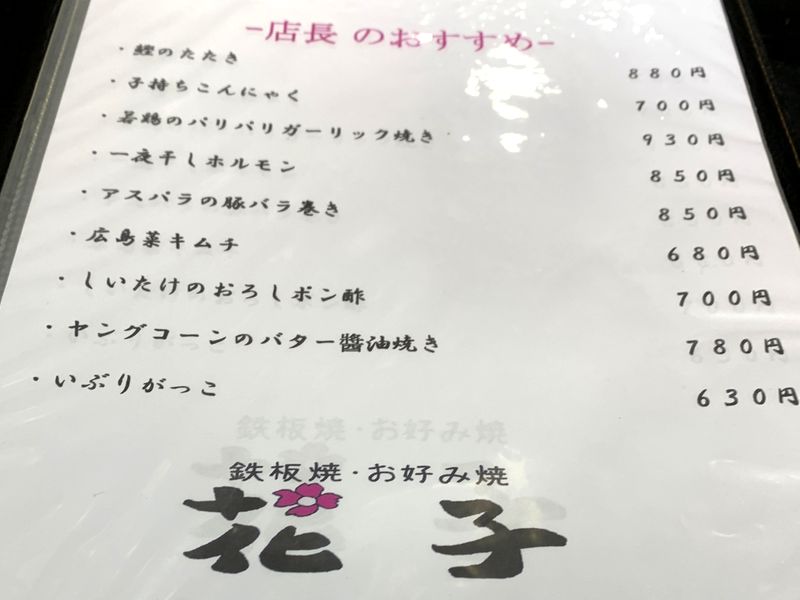 -店長 のおすすめ-
・鰹のたたき 880円
・子持ちこんにゃく 700円
・若鶏のパリパリガーリック焼き 930円
・一夜干しホルモン 850円
・アスパラの豚バラ巻き 850円
・広島菜キムチ 680円
・しいたけのおろしポン酢 700円
・ヤングコーンのバター醬油焼き 780円
・いぶりがっこ 630円
鉄板焼・お好み焼
花子